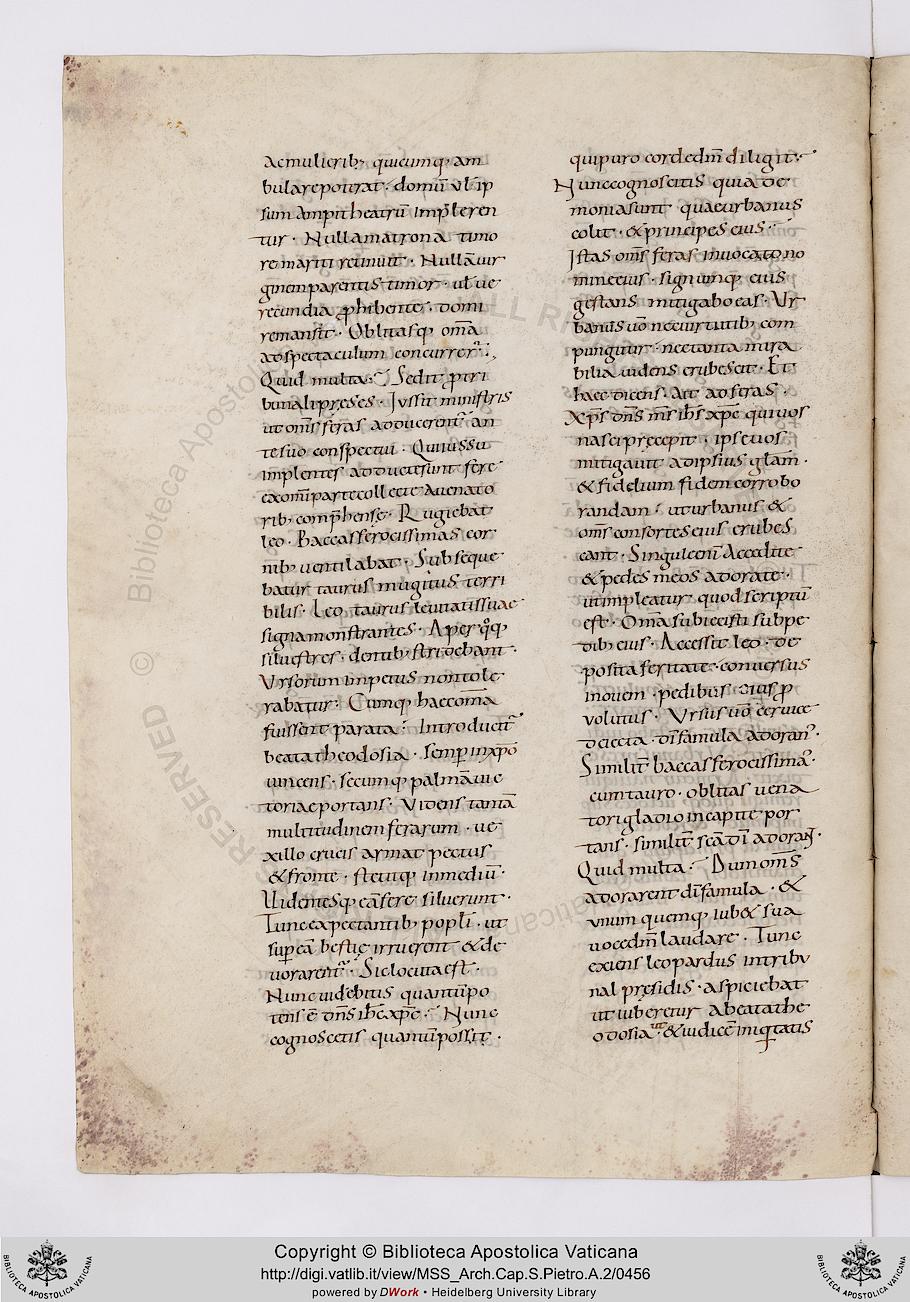 ac mulierib; quicumq; am
bulare poterat · domū ul' ip
sum ampitheatrū impleren
tur · Nulla matrona timo
re mariti retinuit · Nullā uir
ginem parentis timor · ul' ue
recundia p̱hibentes · domi
remansit · Oblitasq; om̄a
ad spectaculum concurrer̄ ·,
Quid multa · Sedit p̱ tri
bunali preses · Iussit ministris
ut om̄s feras adducerent' an
te suo conspectui · Qui iussu
implentes adduxesunt fere
ex omi parte collecte a uenato
rib; comp̄hense · Rugiebat
leo · Baccas ferocissimas cor
nib; uentilabat · Subseque
batur taurus mugitus terri
bilis · Leo taurus leuitatis suae
signa monstrantes · Aper q̊q;
siluestres · dentib; stridebant ·
Vrsorum impetus non tole
rabatur · Cumq; haec om̄a
fuissent parata · Introducit'
beata theodosia · semp̱ in xp̄o
uincens · secumq; palmā uic
toriae portans · Videns tantā
multitudinem ferarum · ue
xillo crucis armat pectus
& fronte · stetitq; in mediū ·
Uidentesq; eā fere siluerunt ·
Tunc expectantib; popl'i · ut
sup̱ eā bestię irruerent & de
uorarent' · Sic locuta est ·
Nunc uidebitis quantū po
tens ē dn̄s ih̄s xp̄e · Nunc
cognoscetis quantū possit ·
qui puro corde dm̄ diligit ·
Nunc cognoscitis quia de
monia sunt quae urbanus
colit · & principes eius ·
Istas om̄s feras inuocato no
mine eius · signumq; eius
gestans mitigabo eas · Vr
banus uō nec uirtutib; com
pungitur · nec tanta mira
bilia uidens erubescit · Et
haec dicens · Ait ad feras ·
Xp̄s dn̄s m̄s ih̄s xp̄e qui uos
nasci pręcepit · ipse uos
mitigauit ad ipsius glām ·
& fidelium fidem corrobo
randam · ut urbanus &
om̄s consortes eius erubes
cant · Singul' cenī Accedite
& pedes meos adorate ·
ut impleatur quod scriptū
est · Om̄a subiecisti sub pe
dib; eius · Accessit leo · de
posita feritate · conuersus
in ouem · pedibus eius p̱
uolutus · Vrsus uō ceruice
deiecta · dī famula adoran' ·
Similit' baccas ferocissima' ·
cum tauro · oblitas uena
tori gladio in capite por
tans · similit' scā dī adorar̄ ·
Quid multa · Dum om̄s
adorarent dī famula · &
unum quemq; iub& sua
uoce dm̄ laudare · Tunc
exiens leopardus in tribu
nal pręsidis · aspiciebat
ut iuberetur a beata the
odosia · ut & iudicē iniq̱tatis
Copyright © Biblioteca Apostolica Vaticana
http://digi.vatlib.it/view/MSS_Arch.Cap.S.Pietro.A.2/0456
powered by DWork • Heidelberg University Library